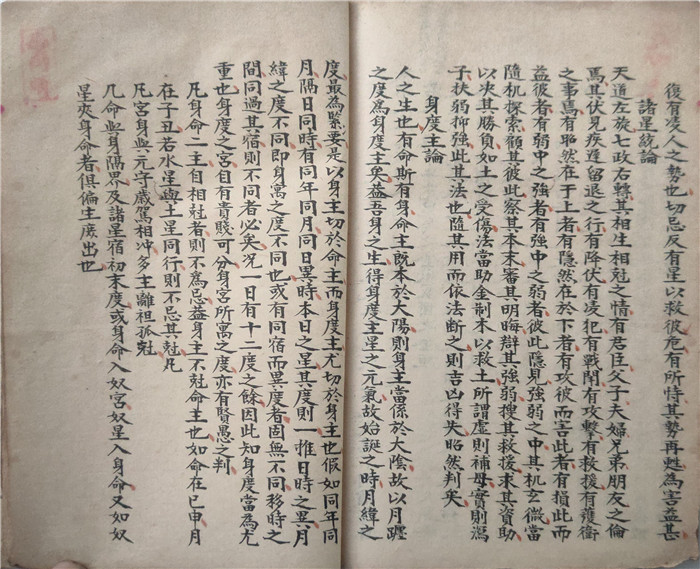 後有凌人之勢也切忌反有星以救彼危有所恃其勢再甦為害益甚
諸星統論
天道左旋七政右轉其相生相尅之情有君臣父子夫婦兄弟朋友之倫
焉其伏見疾遲留退之行有降伏有凌犯有戰鬪有攻擊有救援有護衛
之事焉有昭然在于上者有隱然在於下者有攻彼而害此者有損此而
益彼者有弱中之強者有強中之弱者彼此隱見強弱之中其机玄微當
隨机探索顧其彼此察其本末審其明晦群其強弱搜其救援求其資助
以夾其勝負如土之受傷法當助金制木以救土所謂虛則補母實則瀉
子扶弱抑強此其法也隨其用而依法断之則吉凶得失昭然判矣
身度主論
人之生也有命斯有身命主既本於大陽則身主當係於大陰故以月躔
之度為身度主矣益吾身之生得身度主星之元氣故始誕之時月緯之
度最為緊要是以身主切於命主而身度主尤切於身主也假如同年同
月隔日同時有同年同月同日異時本日之星其度則一推日時之異月
緯之度不同即身寓之度不同也或有同宿而異度者固無不同移時之
間同過其宿則不同者必矣况一日有十二度之餘因此知身度當為尤
重也身度之宮自有貴賤可分身宮所寓之度亦有賢愚之判
凡身命二主自相尅者則不為忌益身主不尅命主也如命在巳申月
在子丑若水星與土星同行則不忌其尅凡
凡宮身與元守歲駕相冲多主離祖孤尅
凡命與身隔界及諸星宿初末度或身命入奴宮奴星入身命又如奴
星夾身命者俱偏主庶出也